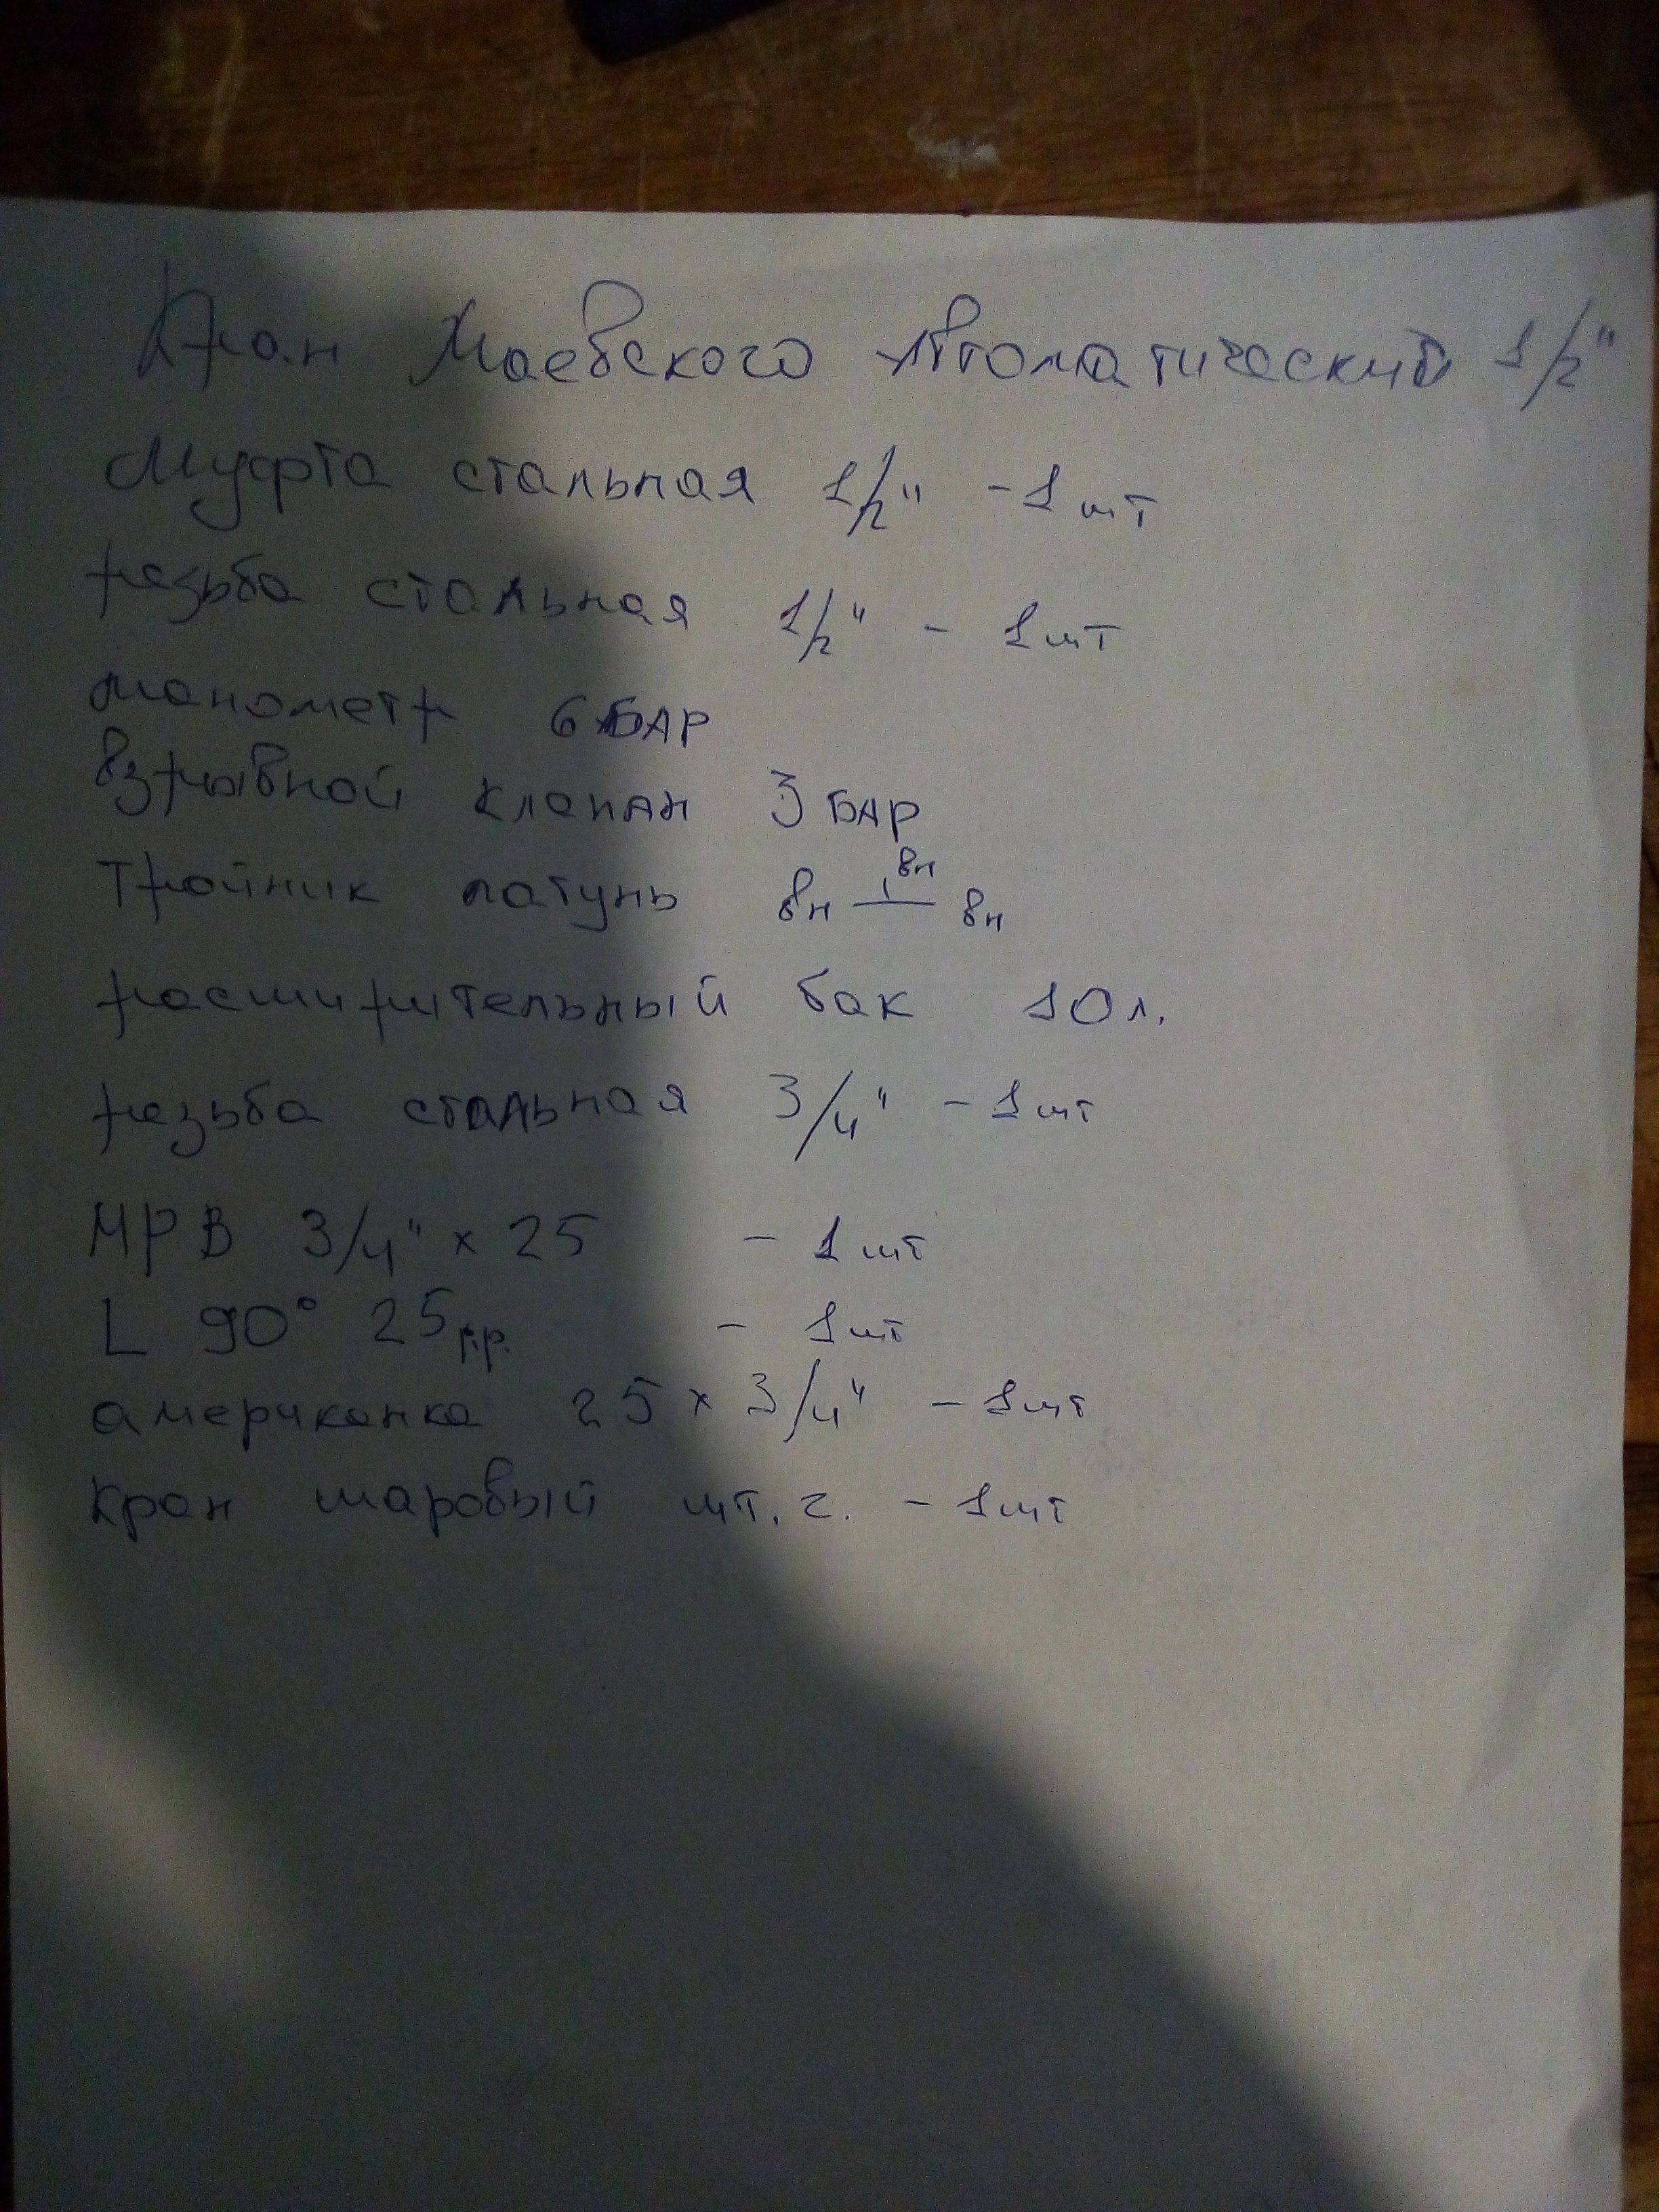 Кран Маевского Автоматический 1/2"
Муфта стальная 1/2" - 1 шт
резьба стальная 1/2" - 1 шт
манометр 6 БАР
взрывной клапан 3 БАР
Тройник латунь вн вн вн
расширительный бак 10 л.
резьба стальная 3/4" - 1 шт
МРВ 3/4" x 25 - 1 шт
L 90° 25 р.р. - 1 шт
американка 25 x 3/4" - 1 шт
кран шаровый шт. г. - 1 шт